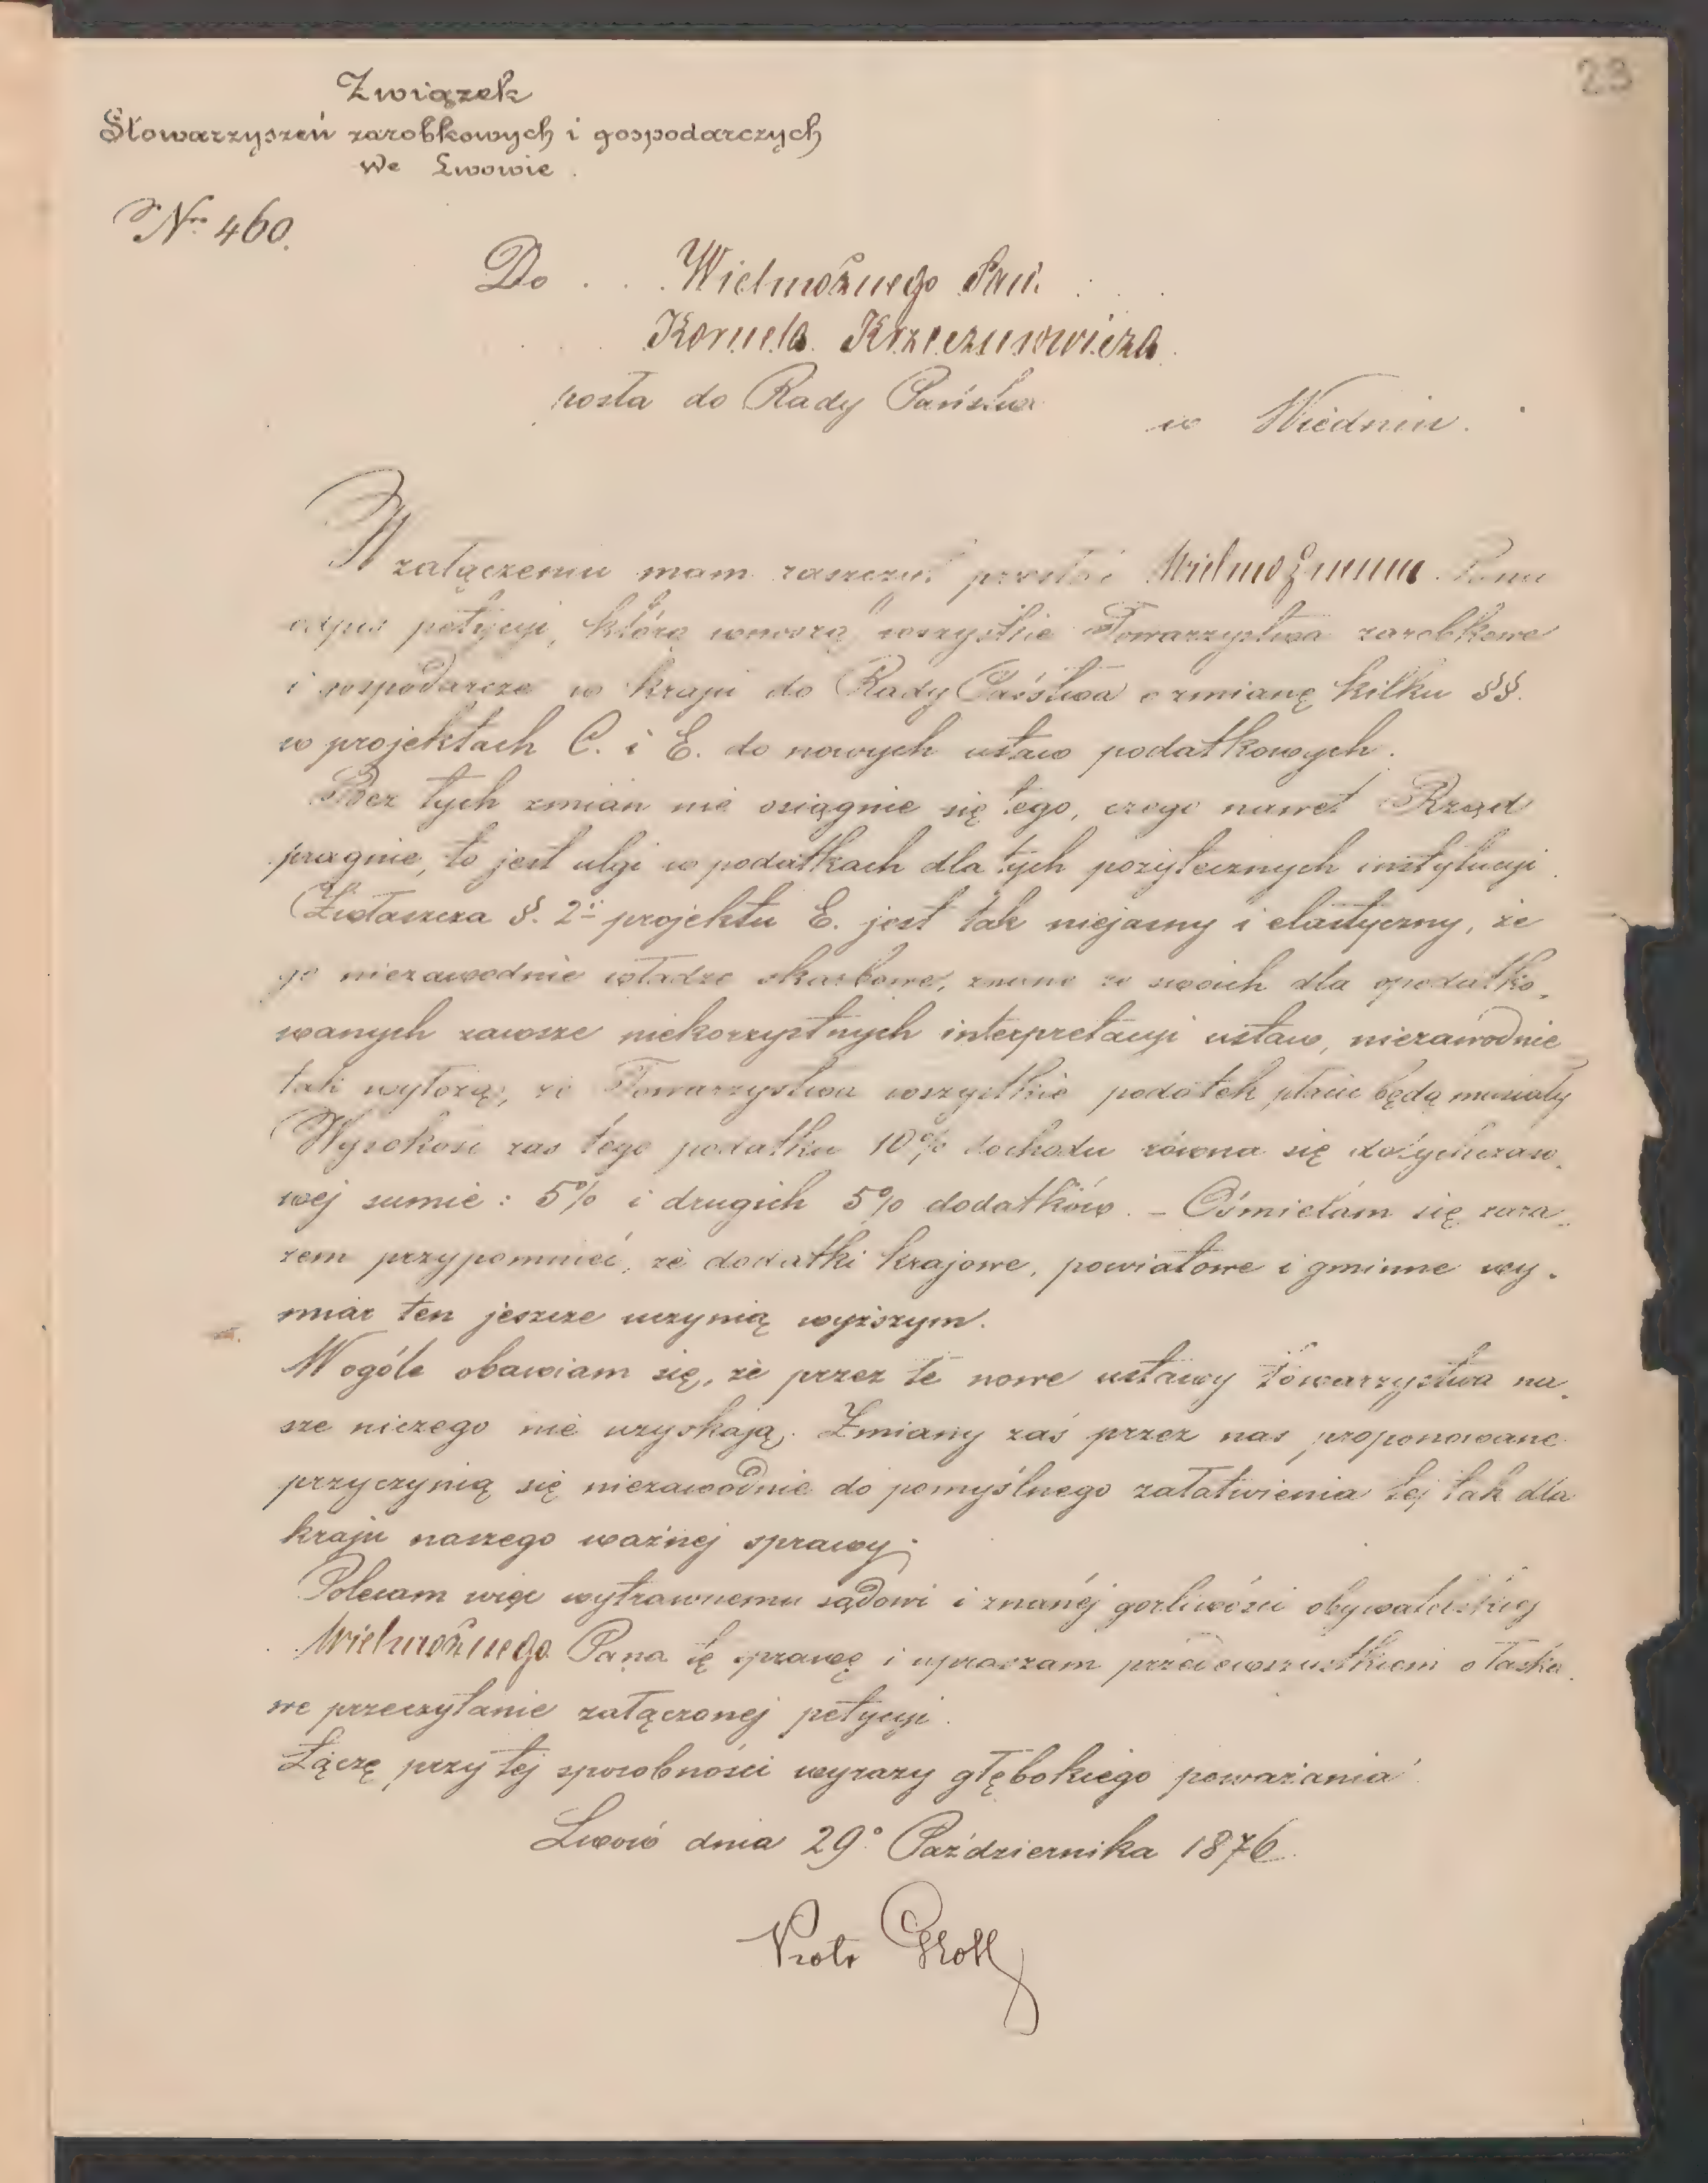 29
Związek
Stowarzyszeń zarobkowych i gospodarczych
we Lwowie.
Nro 460.
Do . . . Wielmożnego Pana
Kornela Krzeczunowicza
posła do Rady Państwa
w Wiedniu.
W załączeniu mam zaszczyt przesłać Wielmożnemu Panu
odpis petycyi, którą wnoszą wszystkie Towarzystwa zarobkowe
i gospodarcze w kraju do Rady Państwa o zmianę kilku §§.
w projektach C. i E. do nowych ustaw podatkowych.
Bez tych zmian nie osiągnie się tego, czego nawet Rząd
pragnie, to jest ulgi w podatkach dla tych pożytecznych instytucyi.
Zwłaszcza §. 2i projektu E. jest tak niejasny i elastyczny, że
go niezawodnie władze skarbowe, znane ze swoich dla opodatko-
wanych zawsze niekorzystnych interpretacyi ustaw, niezawodnie
tak wyłożą, że Towarzystwa wszystkie podatek płacić będą musiały
Wysokość zaś tego podatku 10% dochodu równa się dotychczaso-
wej sumie: 5% i drugich 5% dodatków. – Ośmielam się zara-
zem przypomnieć, że dodatki krajowe, powiatowe i gminne wy-
miar ten jeszcze uczynią wyższym.
W ogóle obawiam się, że przez te nowe ustawy towarzystwa na-
sze niczego nie uzyskają. Zmiany zaś przez nas proponowane
przyczynią się niezawodnie do pomyślnego załatwienia tej tak dla
kraju naszego ważnej sprawy.
Polecam więc wytrawnemu sądowi i znanéj gorliwości obywatelskiej
Wielmożnego Pana tę sprawę i upraszam przedewszystkiem o łaska-
we przeczytanie załączonej petycyi.
Łączę przy tej sposobności wyrazy głębokiego poważania
Lwów dnia 29o Października 1876.